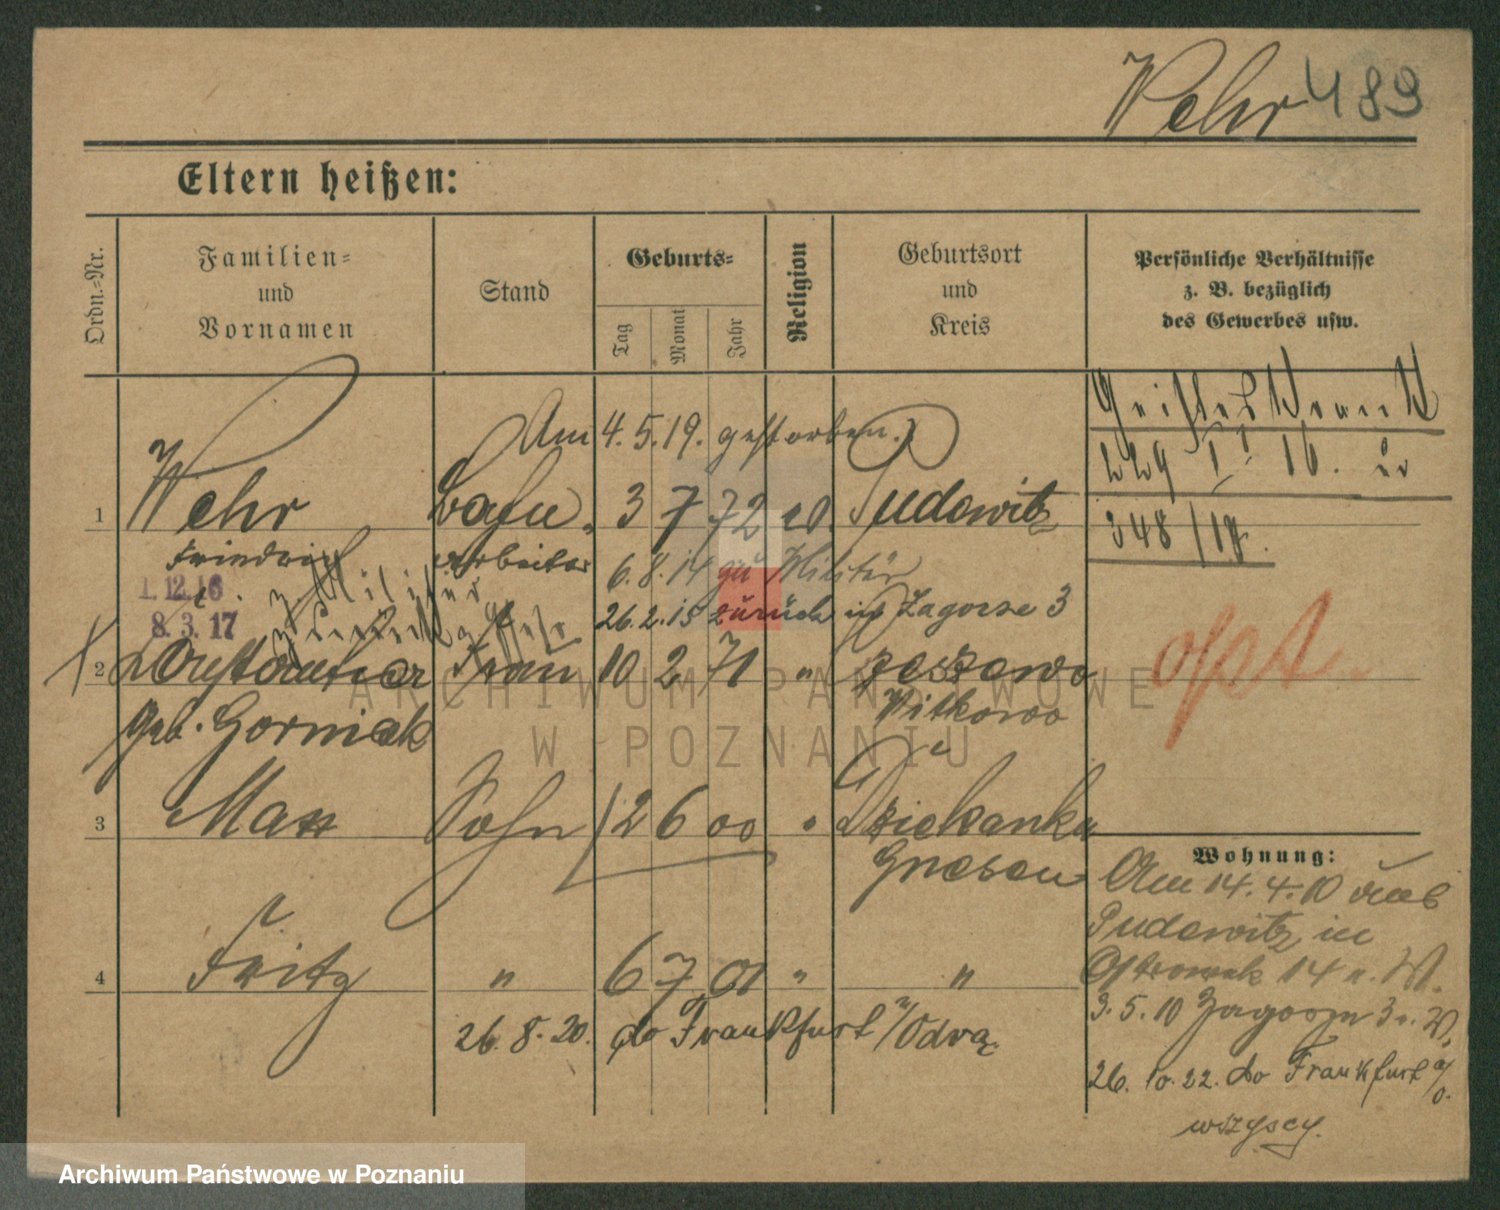 Wehr 489
Eltern heißen:
Ordn.-Nr.
Familien-
und
Vornamen
Stand
Geburts-
Tag
Monat
Jahr
Religion
Geburtsort
und
Kreis
Persönliche Verhältnisse
z. B. bezüglich
des Gewerbes usw.
Am 4.5.19. gestorben.
229 I. 16.
348/18.
1 Wehr 3 7 72 Pudewitz
Friedrich Arbeiter 6.8.14 zu Militär
1.12.16
26.2.15 zurück in Zagorze 3
8.3.17
2 Frau 10 2 71 "
geb. Gorniak Witkowo
opt.
3 Max Sohn 12 6 00 " Dziekanka
Gnesen
4 Fritz " 6 7 01 " "
26.8.20. do Frankfurt n/Odrą
Wohnung:
Am 14.4.10 von
Pudewitz in
Ostrowek 14 n. W.
3.5.10 Zagorze 3 n. W.
26.10.22. do Frankfurt a/O.
wszyscy.
ARCHIWUM PAŃSTWOWE
W POZNANIU
Archiwum Państwowe w Poznaniu